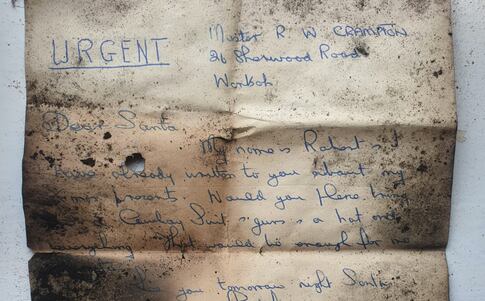 URGENT
Master R W CRAMPTON
26 Sherwood Road
Dear Santa
My name is Robert & I
have already written to you about my
presents. Would you please bring
a Cowboy Suit & guns & a hat and
everything. that would be enough for me
you tomorrow night Santa